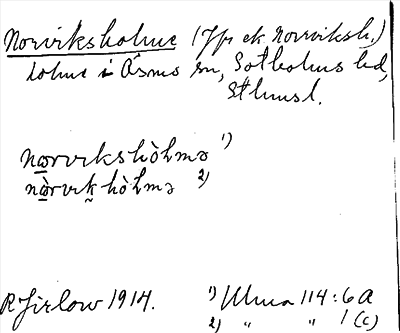 Norviksholme (Jfr ek Norviksh.)
holme i Ösmo sn, Sotholms hd,
Sthmsl.
nɷrvikshòlmə 1)
nɷ̀rvikhòlmə 2)
R Jirlow 1914. 1) Ulma 114:6A
2) " " 1 (c)